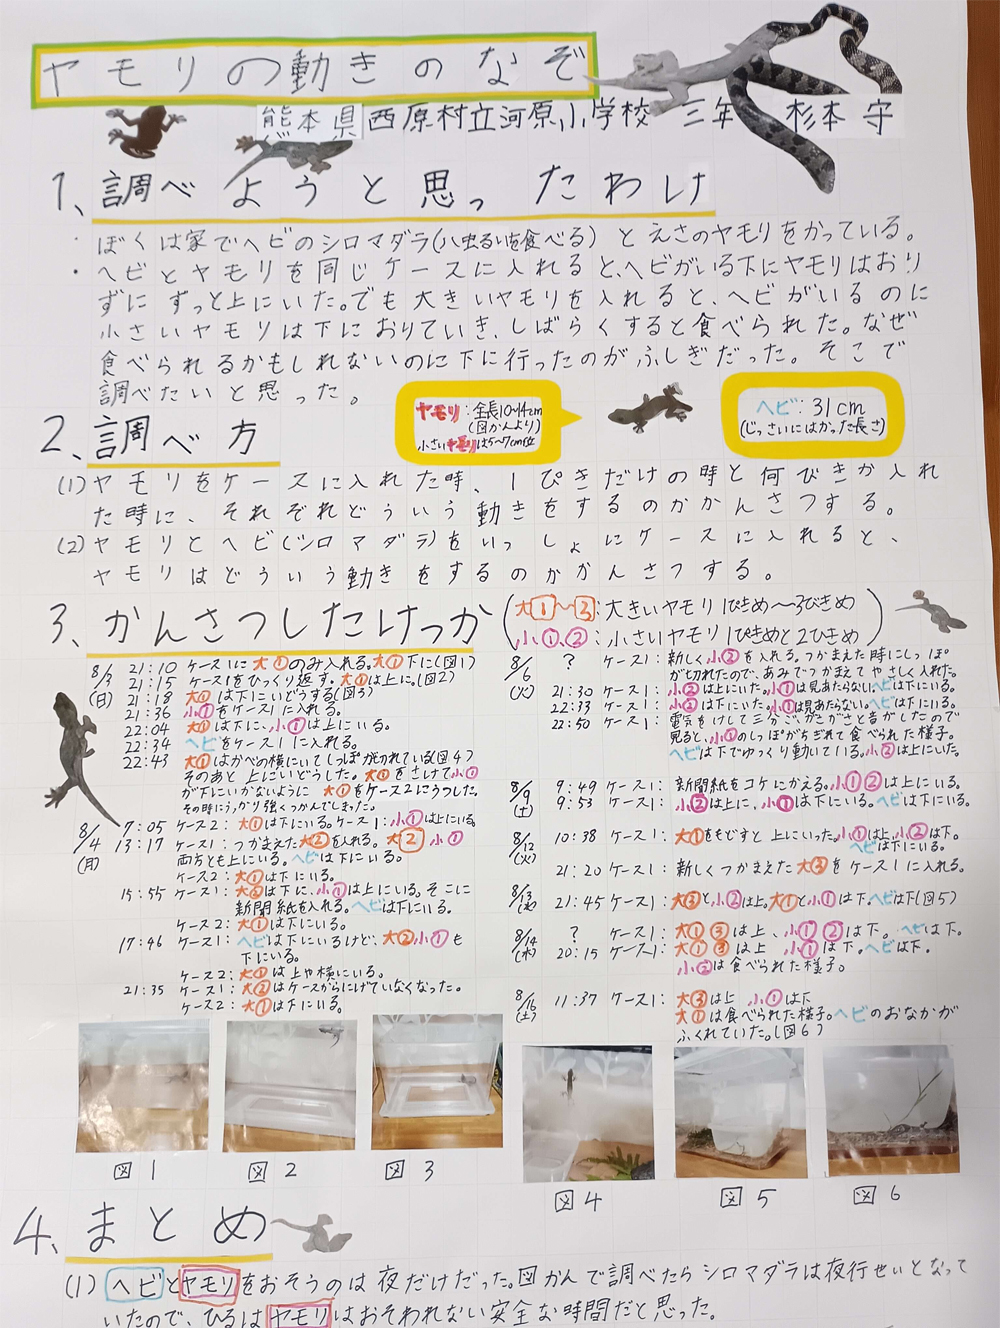 ヤモリの動きのなぞ
熊本県西原村立河原小学校 三年 杉本 守
1、調べようと思ったわけ
・ぼくは家でヘビのシロマダラ(ハ虫るいを食べる)とえさのヤモリをかっている。
・ヘビとヤモリを同じケースに入れると、ヘビがいる下にヤモリはおり
ずにずっと上にいた。でも大きいヤモリを入れると、ヘビがいるのに
小さいヤモリは下におりていき、しばらくすると食べられた。なぜ
食べられるかもしれないのに下に行ったのがふしぎだった。そこで
調べたいと思った。
ヤモリ:全長10~14cm
(図かんより)
小さいヤモリは5~7cm位
ヘビ:31cm
(じっさいにはかった長さ)
2、調べ方
(1)ヤモリをケースに入れた時、1ぴきだけの時と何びきか入れ
た時に、それぞれどういう動きをするのかかんさつする。
(2)ヤモリとヘビ(シロマダラ)をいっしょにケースに入れると、
ヤモリはどういう動きをするのかかんさつする。
3、かんさつしたけっか
(大1~3:大きいヤモリ1ぴきめ~3びきめ
小①、②:小さいヤモリ1ぴきめと2ひきめ)
8/3(日) 21:10 ケース1に大①のみ入れる。大①下に(図1)
21:15 ケースをひっくり返す。大①は上に。(図2)
21:18 大①は下にいどうする(図3)
21:36 小①をケース1に入れる。
22:04 大①は下に、小①は上にいる。
22:34 ヘビをケース1に入れる。
22:43 大①はかべの横にいてしっぽが切れている(図4)
そのあと上にいどうした。大①をさけて小①
が下にいかないように大①をケース2にうつした。
その時にうっかり強くつかんでしまった。
8/4(月) 7:05 ケース2:大①は下にいる。ケース1:小①は上にいる。
13:17 ケース1:つかまえた大②を入れる。大2 小①
両方とも上にいる。ヘビは下にいる。
ケース2:大①は下にいる。
15:55 ケース1:大②は下に、小①は上にいる。そこに
新聞紙を入れる。ヘビは下にいる。
ケース2:大①は下にいる。
17:46 ケース1:ヘビは下にいるけど、大②小①も
下にいる。
ケース2:大①は上や横にいる。
21:35 ケース1:大②はケースからにげていなくなった。
ケース2:大①は下にいる。
8/6(火) ? ケース1:新しく小②を入れる。つかまえた時にしっぽ
が切れたので、あみでつかまえてやさしく入れた。
21:30 ケース1:小②は上にいた。小①は見あたらない。ヘビは下にいる。
22:33 ケース1:小②は下にいた。小①は見あたらない。ヘビは下にいる。
22:50 ケース1:電気をけして三分ご、がさがさと音がしたので
見ると、小①のしっぽがちぎれて食べられた様子。
ヘビは下でゆっくり動いている。小②は上にいた。
8/9(土) 9:49 ケース1:新聞紙をコケにかえる。小①②は上にいる。
9:53 ケース1:小②は上に、小①は下にいる。ヘビは下にいる。
8/12(火) 10:38 ケース1:大①をもどすと上にいった。小①は上、小②は下。
ヘビは下にいる。
21:20 ケース1:新しくつかまえた大③をケース1に入れる。
8/13(水) 21:45 ケース1:大③と小②は上。大①と小①は下。ヘビは下(図5)
8/14(木) ? ケース1:大①③は上、小①②は下。ヘビは下。
20:15 ケース1:大①③は上 小①は下。ヘビは下。
小②は食べられた様子。
8/16(土) 11:37 ケース1:大③は上 小①は下
大①は食べられた様子。ヘビのおなかが
ふくれていた。(図6)
図1
図2
図3
図4
図5
図6
4、まとめ
(1)ヘビとヤモリをおそうのは夜だけだった。図かんで調べたらシロマダラは夜行せいとなって
いたので、ひるはヤモリはおそわれない安全な時間だと思った。